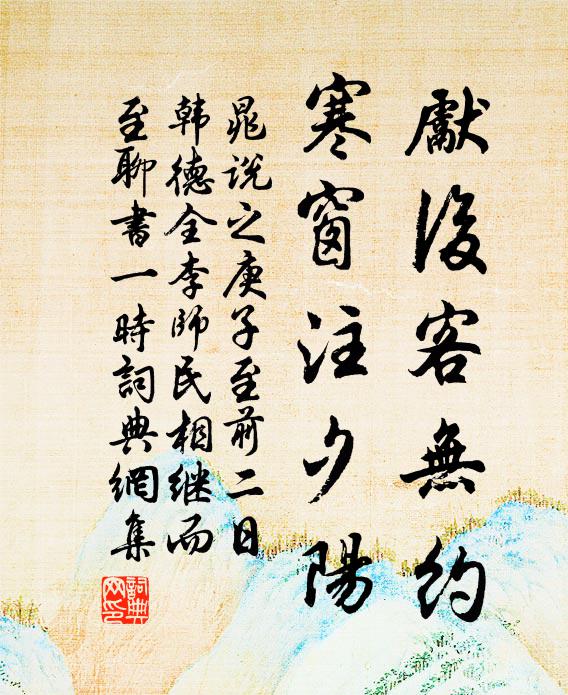 獻後客無約
寒窗注夕陽
晁説之庚子至前二日
韩德全李師民相继而
至聊書一時詞典網集
詞典网印